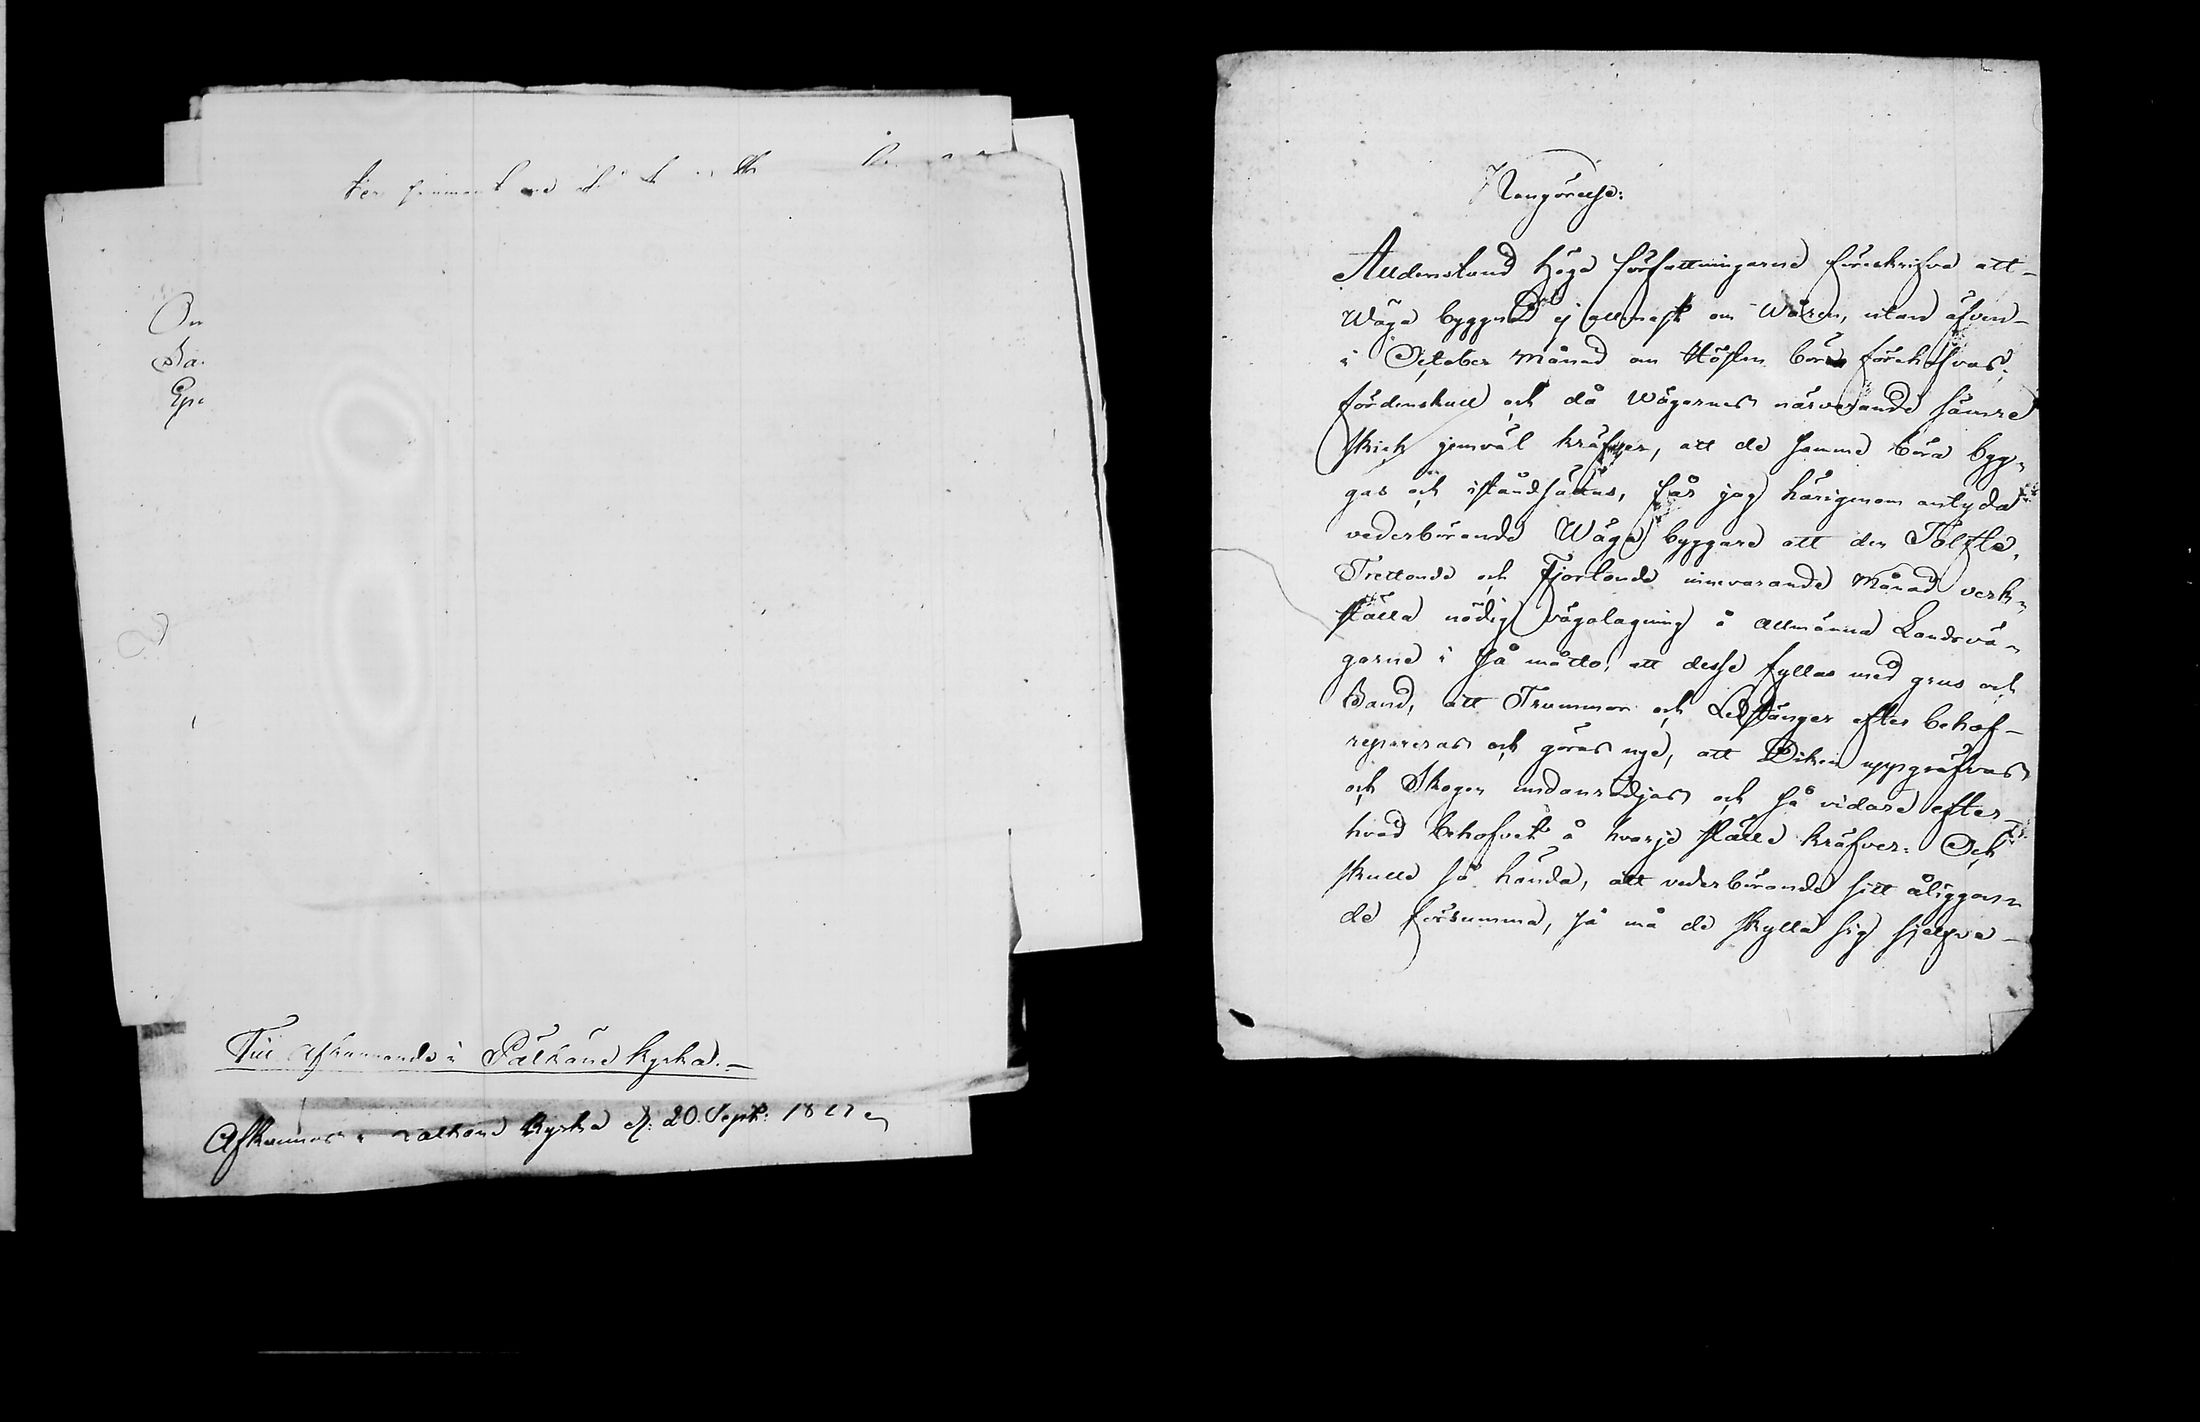 On
Sa
Till afkunnande i Pälkäne kyrka.–
Afkunnas i Pälkäne kyrka d. 20. Sept:
Kungörelse:
Alldenstund höga författningarne föreskrifva att
Wäga byggnad ej allenast om Wåren, utan äfven
i October månad om Hösten böra förehafvas;
fördenskull och då Wägarnes närvarande sämre
skick jemväl kräfver, att de samme böra byg-
gas och iståndsättas, får jag härigenom antyda
vederbörande Wäga byggare att den Tolfte,
Trettonde och Fjortonde innevarande Månad verk-
ställa nödig vägalagning å allmänna Landsvä-
garne i så måtto, att desse fyllas med grus och
Sand, att Trummor och Ledstänger efter behof
repareras och göras nye, att Diken uppgräfvas
och Skogen undanrödjas och så vidare efter
hvad behofvet å hvarje ställe kräfver. Och
skulle så hända, att vederbörande sitt åliggan-
de försumma, så må de skylla sig sjelfva